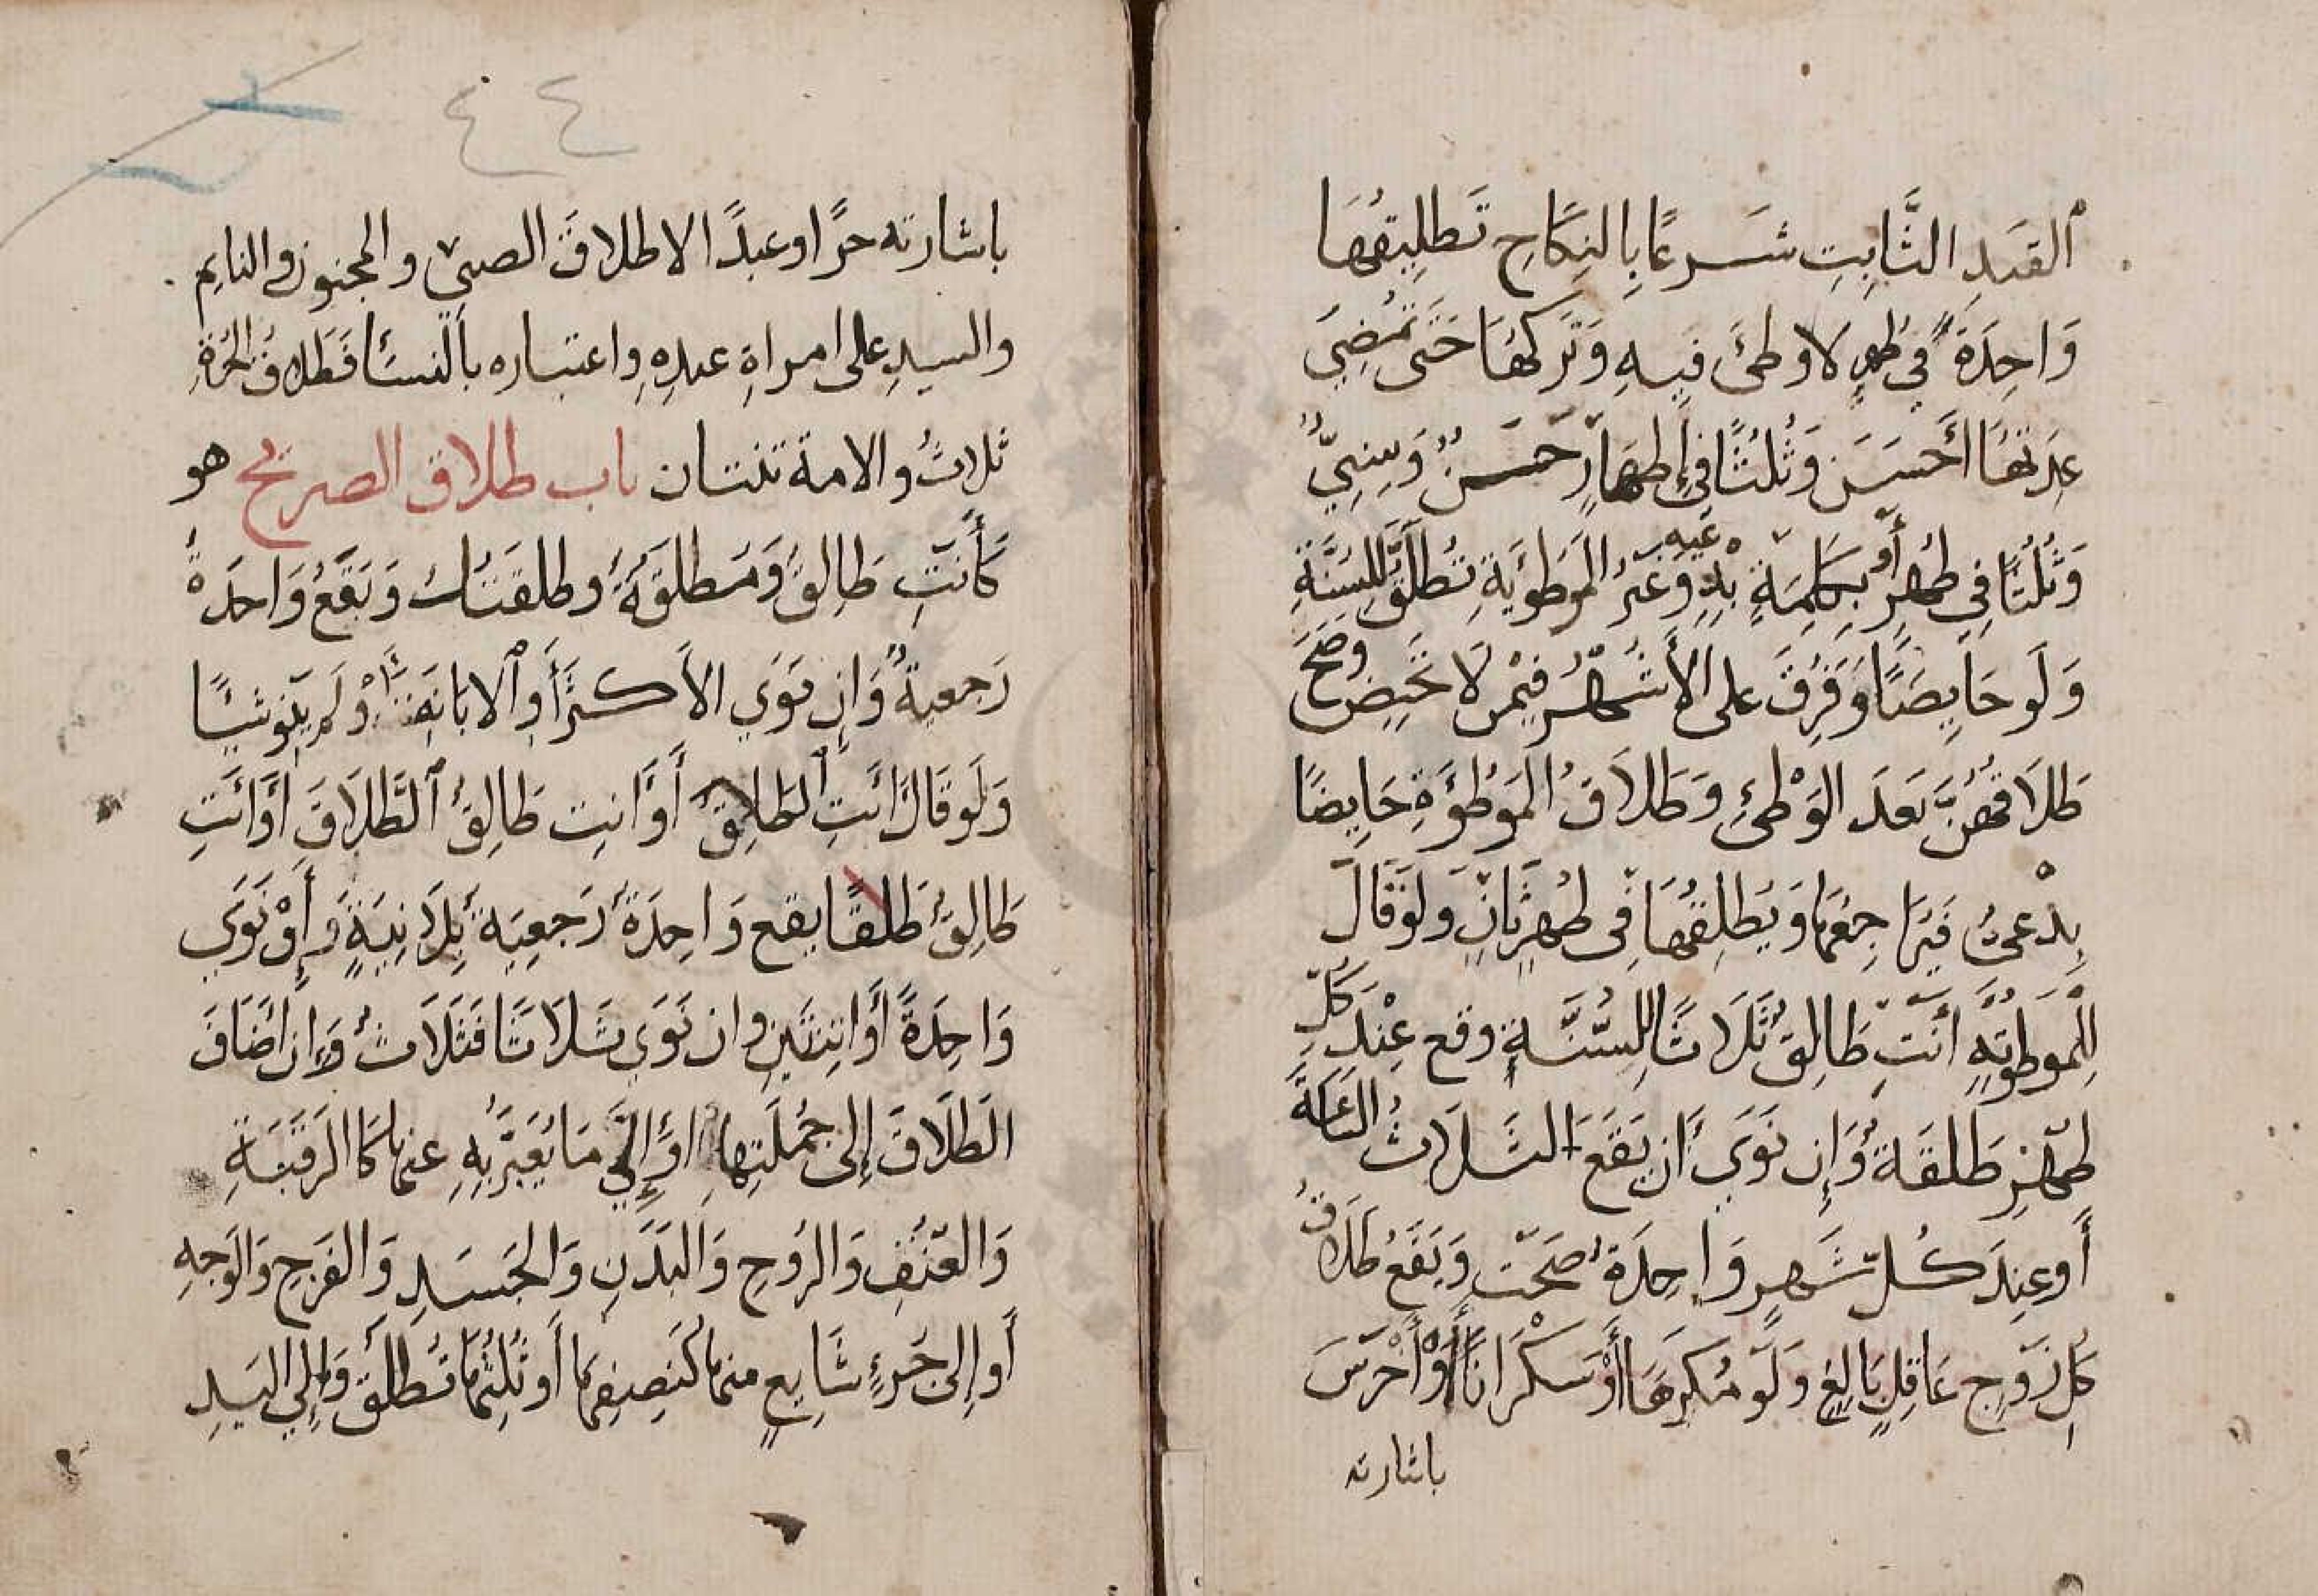 القيدِ الثَّابِتِ شَرعًا بِالنِكَاحِ تَطلِيقُهَا
وَاحِدَةً في طُهرٍ لا وطئَ فِيهِ وَتَركُهَا حَتَى تمضِيَ
عِدَتُهَا أَحسَنَ وَثُلثًا في اِطهَارٍ حَسَنٌ وَسِنِيٌّ
وَثُلثًا فِي طُهرٍ أَو بِكَلِمَةٍ بِدعيه وَغَيرُ المَوطؤَيةِ تُطَلَّقُ للِسُنَّةِ
وَلَو حَايِضًا وَفَرِقَ على الأَشهُرِ فيمَن لَا تَحيِض وصَحَ
طَلاَقُهُنَّ بَعدَ الوَطْئِ وَطَلاَقُ المَوْطُؤَةِ حَايِضًا
بِدْعىُ فَيُرَاجِعُهَا وَيُطلِقُهَا فِى طُهرٍ ثَانٍ وَلَو قَالَ
لِلمَوطؤتِهِ أَنتِ طَالِقٌ ثَلَاثًا لِلسُّنَّةِ وقع عِنْدَ كُلِّ
طُهرٍ طَلقَةٌ وَإِن نَوَى أَن يَقَعَ الثَلَاثُ السَاعَةَ
أَو عِندَ كُلِّ شَهرٍ وَاحِدَةٌ صَحَت وَيَقَعُ طَلَاقُ
كُلِ زَوجٍ عَاقِلٍ بَالِغٍ وَلَو مُكرَهًا أَوْ سَكْرَانًا أَوْ أَخْرَسَ
باشارته
٤٤
باشارته حرًا او عبدًا الا طلاقَ الصبيِ والمجنون والنايمِ
والسيدِ على امراةِ عبدِهِ واعتباره بالنسَا فَطَلاقُ الحُرةِ
ثلاثُ والامة ثنتان باب طلاق الصريح هو
كَأَنتِ طَالِقٌ وَمُطَلقَةٌ وطلقتكِ وَيَقَعُ وَاحدَةً
رَجعيةً وَإِن نَوَي الأَكثَرَ أَو الاِبَانَةَ أَوْ لَم يَنوِ شَيئًا
وَلَو قَالَ اَنتِ الطَلاقُ أَو أَنتِ طَالِقُ الطَّلاَقَ أَو أَنتِ
طَالِقٌ طَلَاقًا يقع وَاحِدَةٌ رَجعِيَةٌ بِلاَ نِيَةٍ أَوْ نَوَي
وَاحِدَةً أَو اثِنتَينِ وان نَوَى ثَلاثًا فَثَلاَثُ وَإِن اَضَافَ
الطَلَاقَ إِلى جُملَتِهَا اوَ إِلَي مَا يُعَبَّرُ بِهِ عنها كَا الرَقَبَةِ
وَالعُنُقِ وَالرُوحِ وَالبَدَنِ وَالجَسَدِ وَالفَرجِ وَالوَجهِ
أَو إِلى جَزءٍ شَايِعٍ منها كَنِصفِهَا أَو ثُلثِهَا تُطلَقُ وَإِلي اليَدِ